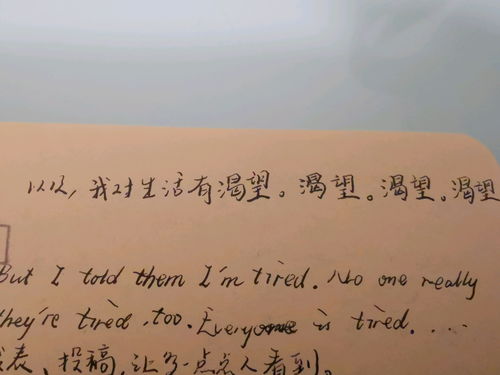 以及，我对生活有渴望。渴望。渴望。渴望
But I told them I'm tired. No one really
they're tired, too. Everyone is tired. ....
发表、投稿，让多一点点人看到。